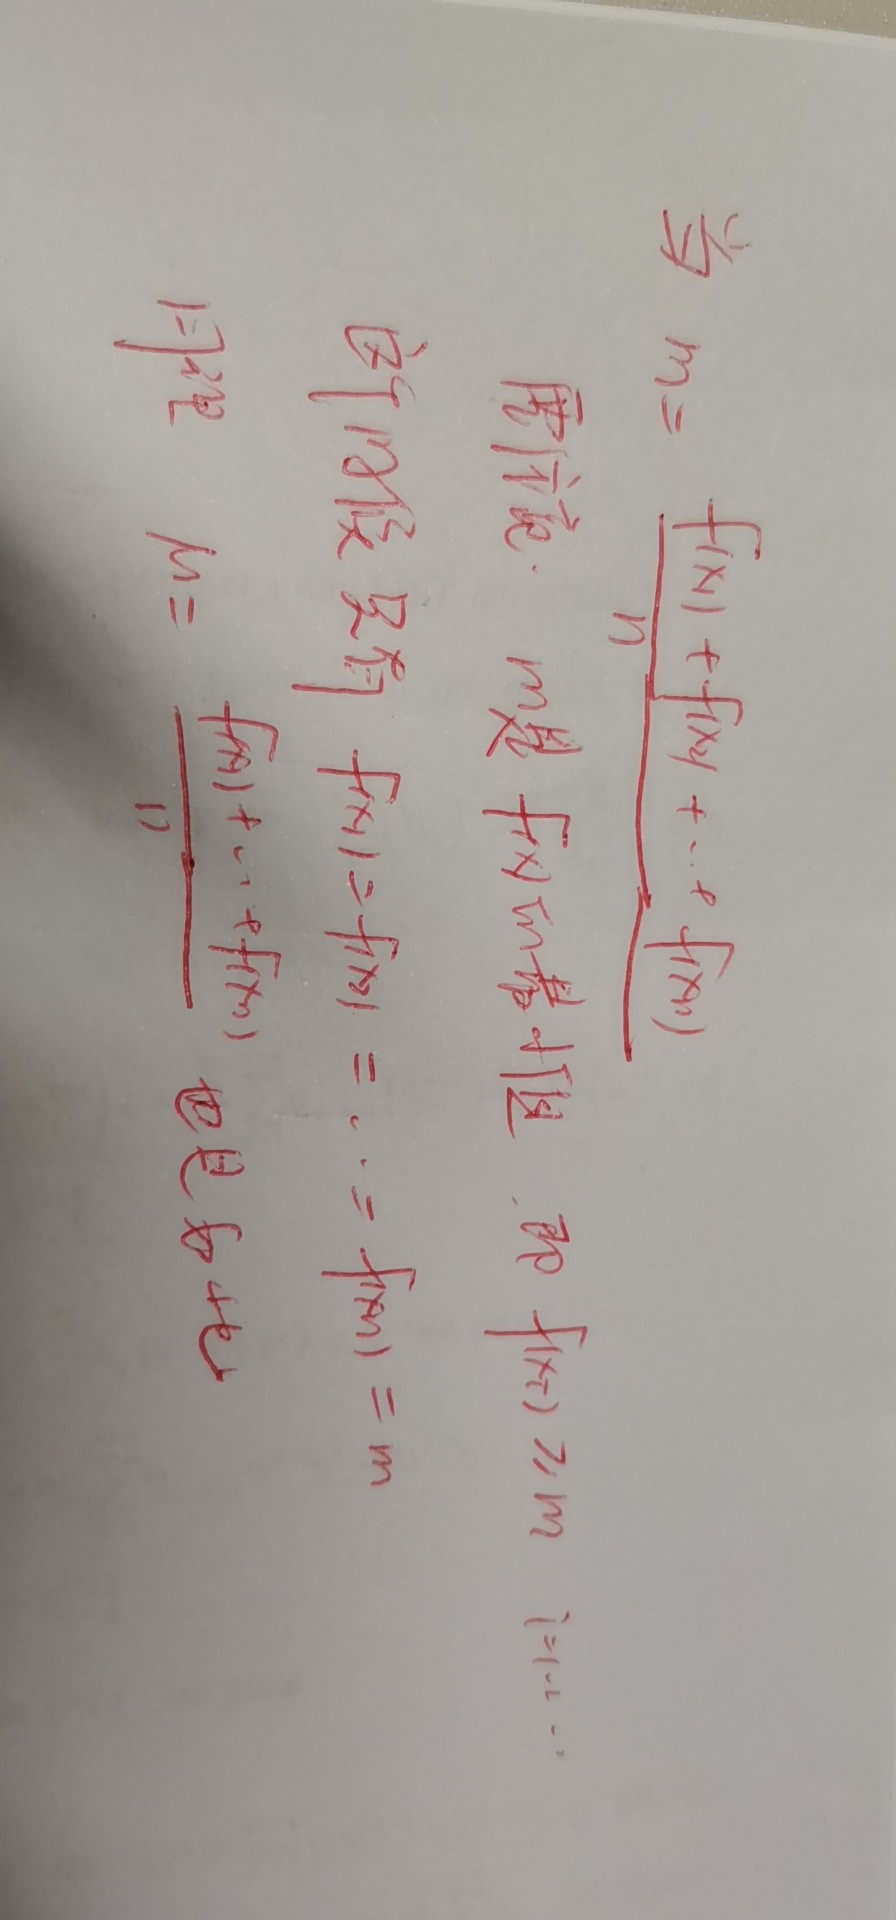 当 m = f(x1) + f(x2) + … + f(xn) / n
m是 f(x) 的最小值 即 f(xi) ≥ m i=1…
f(x1) = f(x2) = … = f(xn) = m
同理 M = f(x1) + … + f(xn) / n 也是